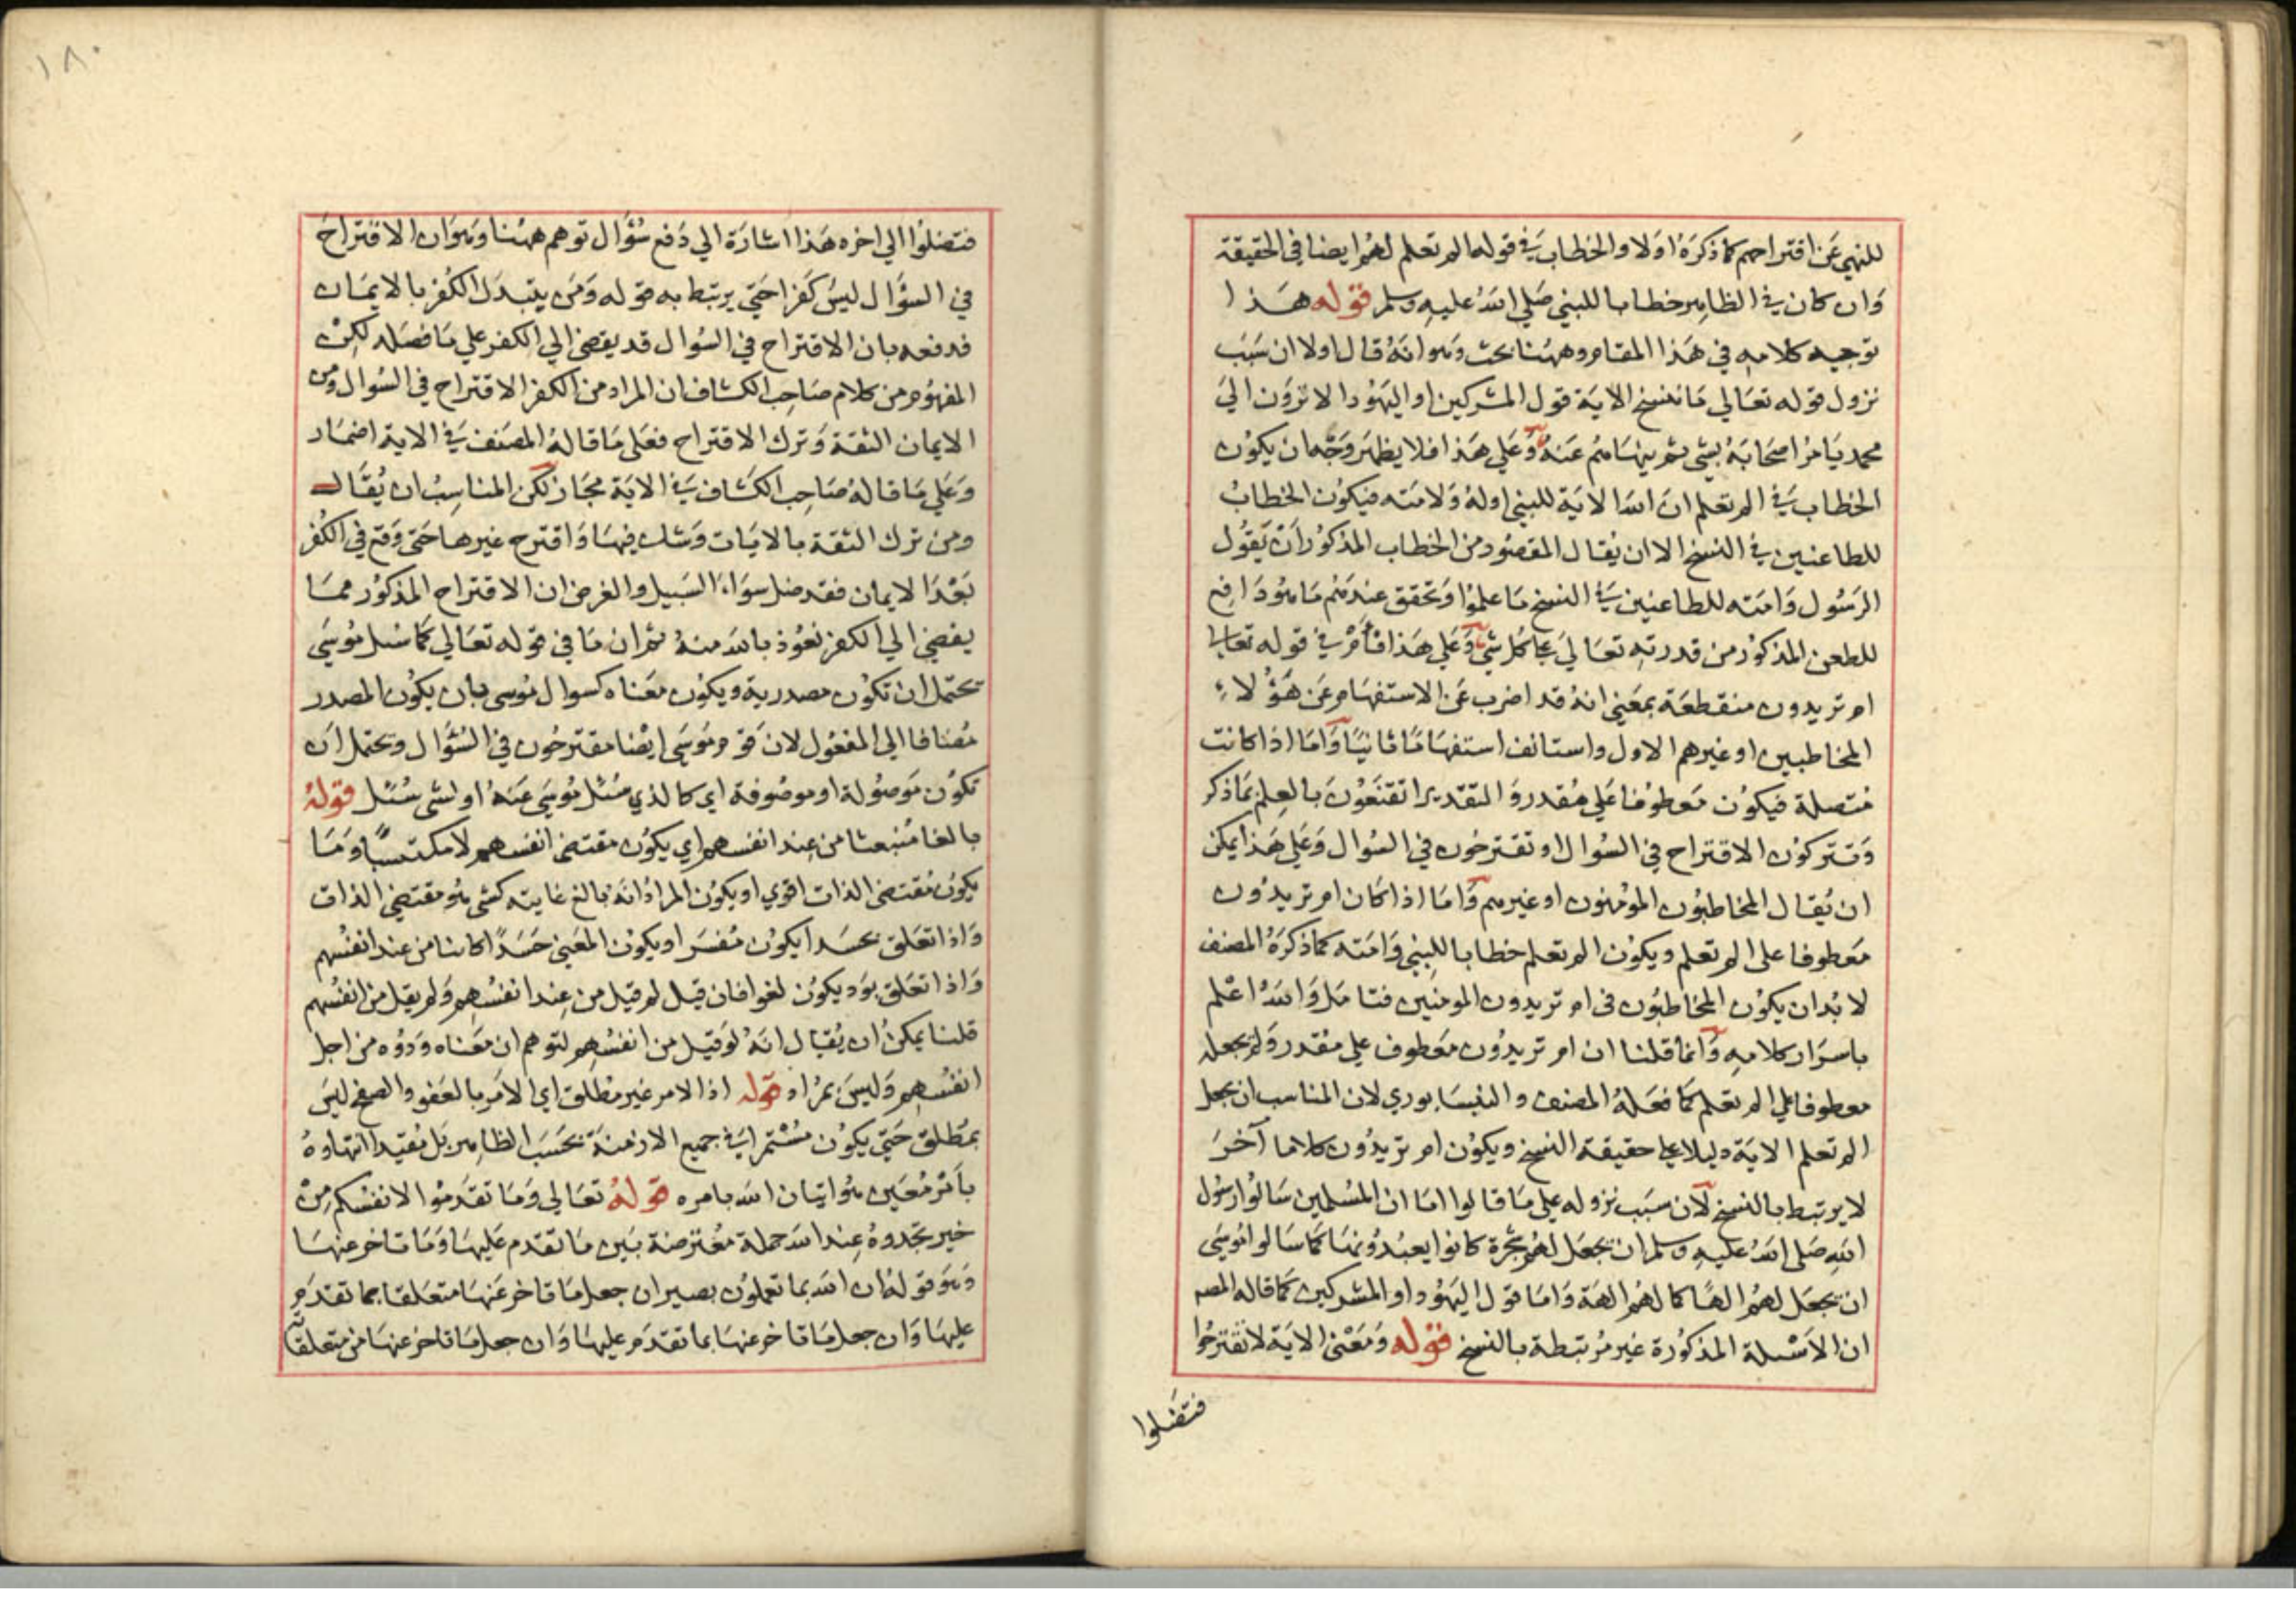 للنهي عن اقتراحهم كما ذكره اولا والخطاب في قوله الم تعلم لهم ايضا في الحقيقة
وان كان في الظاهر خطابا للنبي صلي الله عليه وسلم قوله هذا
توجيه كلامه في هذا المقام وههنا بحث وهو انه قال اولا ان سبب
نزول قوله تعالي ما ننسخ الاية قول المشركين او اليهود الا ترون الي
محمد يامر اصحابه بشي ثم ينهاهم عنه وعلي هذا فلا يظهر وجه ان يكون
الخطاب في الم تعلم ان الله الاية للنبي او له ولامته فيكون الخطاب
للطاعنين في النسخ الا ان يقال المقصود من الخطاب المذكور ان يقول
الرسول وامته للطاعنين في النسخ ما علموا وتحقق عندهم ما هو دافع
للطعن المذكور من قدرته تعالي علي كل شي وعلي هذا فأم في قوله تعالي
ام تريدون منقطعة بمعني انه قد اضرب عن الاستفهام عن هؤلاء
المخاطبين او غيرهم الاول واستانف استفهاما ثانيا واما اذا كانت
متصلة فيكون معطوفا علي مقدر والتقدير اتقنعون بالعلم بما ذكر
وتتركون الاقتراح في السوال او تقترحون في السوال وعلي هذا يمكن
ان يقال المخاطبون المؤمنون او غيرهم واما اذا كان ام تريدون
معطوفا على الم تعلم ويكون الم تعلم خطابا للنبي وامته كما ذكره المصنف
لا بد ان يكون المخاطبون في ام تريدون المومنين فتامل والله اعلم
باسرار كلامه وانما قلنا ان ام تريدون معطوف علي مقدر ولم يجعله
معطوفا علي الم تعلم كما فعله المصنف والنيسابوري لان المناسب ان يجعل
الم تعلم الاية دليلا علي حقيقة النسخ ويكون ام تريدون كلاما آخر
لا يرتبط بالنسخ لان سبب نزوله علي ما قالوا اما ان المسلمين سالوا رسول
الله صلى الله عليه وسلم ان يجعل لهم شجرة كانوا يعبدونها كما سالوا موسي
ان يجعل لهم الها كما لهم الهة واما قول اليهود او المشركين كما قاله المصـ
ان الاسئلة المذكورة غير مرتبطة بالنسخ قوله ومعنى الاية لا تقترحوا
فتضلوا
١٨٠
فتضلوا الي اخره هذا اشارة الي دفع سؤال توهم ههنا وهو ان الاقتراح
في السؤال ليس كفرا حتي يرتبط به قوله ومن يتبدل الكفر بالايمان
فدفعه بان الاقتراح في السوال قد يفضي الي الكفر علي ما فصله لكن
المفهوم من كلام صاحب الكشاف ان المراد من الكفر الاقتراح في السوال ومن
الايمان الثقة وترك الاقتراح فعلى ما قاله المصنف في الاية اضمار
وعلي ما قاله صاحب الكشاف في الاية مجاز لكن المناسب ان يقال
ومن ترك الثقة بالايات وشك فيها واقترح غيرها حتى وقع في الكفر
بعد الايمان فقد ضل سواء السبيل والغرض ان الاقتراح المذكور مما
يفضي الي الكفر نعوذ بالله منه ثم ان ما في قوله تعالي كما سئل موسي
تحتمل ان تكون مصدرية ويكون معناه كسوال موسى بان يكون المصدر
مضافا الي المفعول لان قوم موسي ايضا مقترحون في السؤال ويحتمل ان
تكون موصولة او موصوفة اي كالذي سئل موسي عنه او لشي سئل قوله
بالغا منبعثا من عند انفسهم اي يكون مقتضى انفسهم لا مكتسبا وما
يكون مقتضى الذات اقوي او يكون المراد انه بالغ غايته كشي هو مقتضي الذات
واذا تعلق بحسدا يكون مفسرا ويكون المعني حسدا كائنا من عند انفسهم
واذا تعلق بود يكون لغوا فان قيل لم قيل من عند انفسهم ولم يقل من انفسهم
قلنا يمكن ان يقال انه لو قيل من انفسهم لتوهم ان معناه ودوه من اجل
انفسهم وليس بمراد قوله اذ الامر غير مطلق اي الامر بالعفو والصفح ليس
بمطلق حتي يكون مستمرا في جميع الازمنة بحسب الظاهر بل مقيد انتهاوه
بأمر معين هو اتيان الله بامره قوله تعالي وما تقدموا لانفسكم من
خير تجدوه عند الله جملة معترضة بين ما تقدم عليها وما تاخر عنها
وهو قوله ان الله بما تعملون بصير ان جعل ما تاخر عنها متعلقا بما تقدم
عليها وان جعل ما تاخر عنها بما تقدم عليها وان جعل ما تاخر عنها من متعلقاته